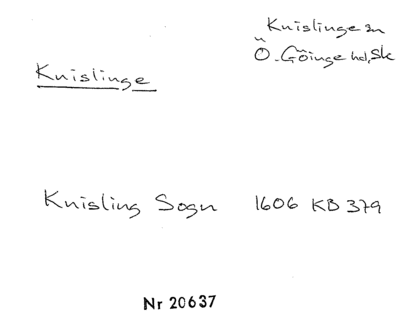 Knislinge sn
Ö. Göinge hd, Sk
Knislinge
Knisling Sogn 1606 KB 379
Nr 20637